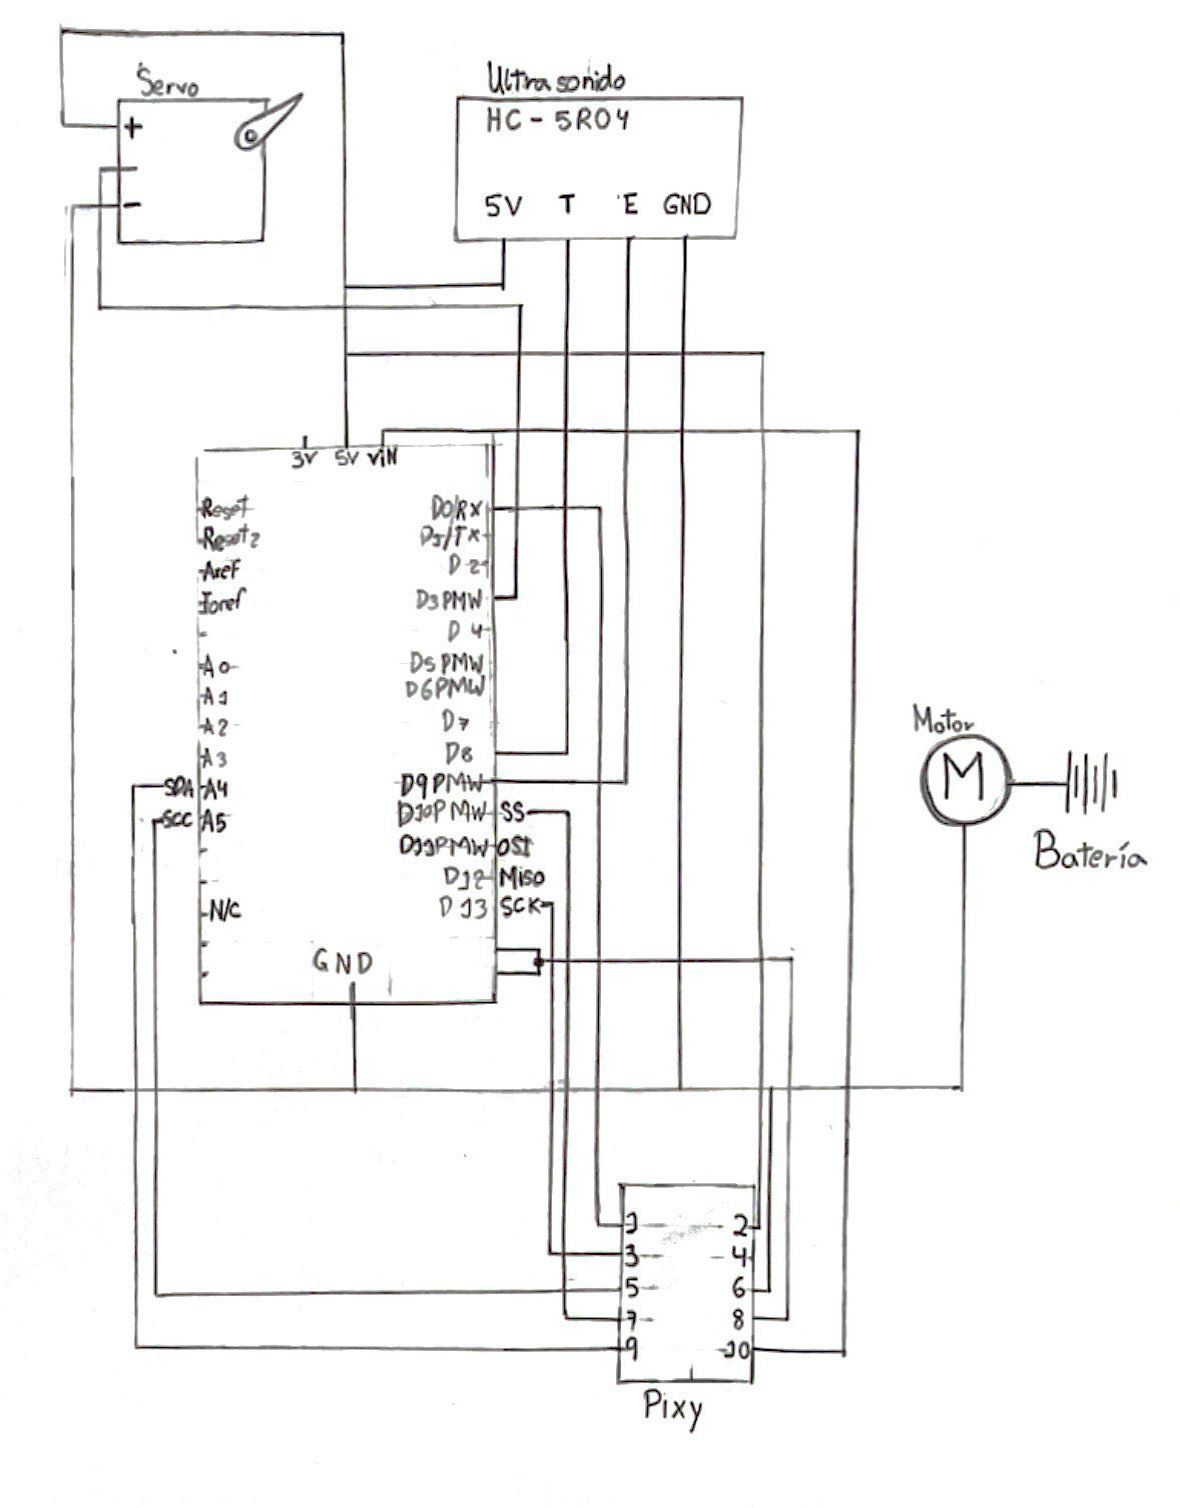 Servo
+
-
Ultrasonido
HC - 5R04
5V T E GND
3V 5V vIN
Reset
Reset2
Aref
Ioref
A0
A1
A2
A3
SDA A4
SCC A5
N/C
D0/RX
D1/TX
D2
D3PMW
D4
D5PMW
D6PMW
D7
D8
D9PMW
D10PMW SS
D11PMW OSI
D12 Miso
D13 SCK
GND
Motor
M
Batería
1 2
3 4
5 6
7 8
9 10
Pixy